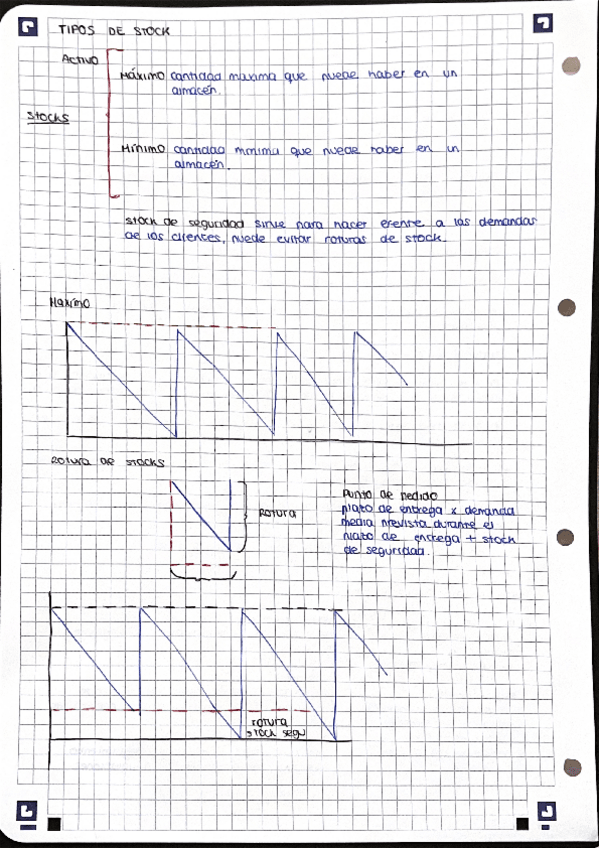 TIPOS DE STOCK
Activo
Máximo cantidad maxima que puede haber en un
almacén.
Stocks
Mínimo cantidad minima que puede haber en un
almacén.
Stock de seguridad sirve para hacer frente a las demandas
de los clientes, puede evitar roturas de stock.
Maximo
Rotura de stocks
Rotura
Punto de pedido
plazo de entrega x demanda
media prevista durante el
plazo de entrega + stock
de seguridad.
rotura
stock segu